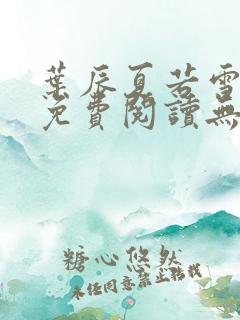 葉辰夏若雪
免費閱讀無
糖心悠然
未任同意禁止轉載